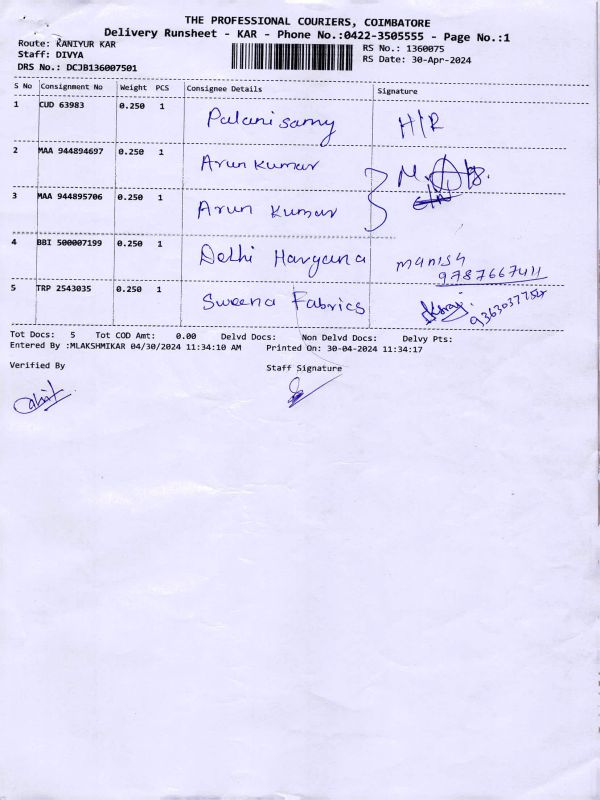 THE PROFESSIONAL COURIERS, COIMBATORE
Delivery Runsheet - KAR - Phone No.:0422-3505555 - Page No.:1
Route: KANIYUR KAR
Staff: DIVYA
DRS No.: DCJB136007501
RS No.: 1360075
RS Date: 30-Apr-2024
S No Consignment No Weight PCS Consignee Details Signature
1 CUD 63983 0.250 1 Palanisamy H/R
2 MAA 944894697 0.250 1 Arun Kumar
3 MAA 944895706 0.250 1 Arun Kumar
4 BBI 500007199 0.250 1 Delhi Haryana manish
9787667411
5 TRP 2543035 0.250 1 Sweena Fabrics
Tot Docs: 5 Tot COD Amt: 0.00 Delvd Docs: Non Delvd Docs: Delvy Pts:
Entered By :MLAKSHMIKAR 04/30/2024 11:34:10 AM Printed On: 30-04-2024 11:34:17
Verified By Staff Signature